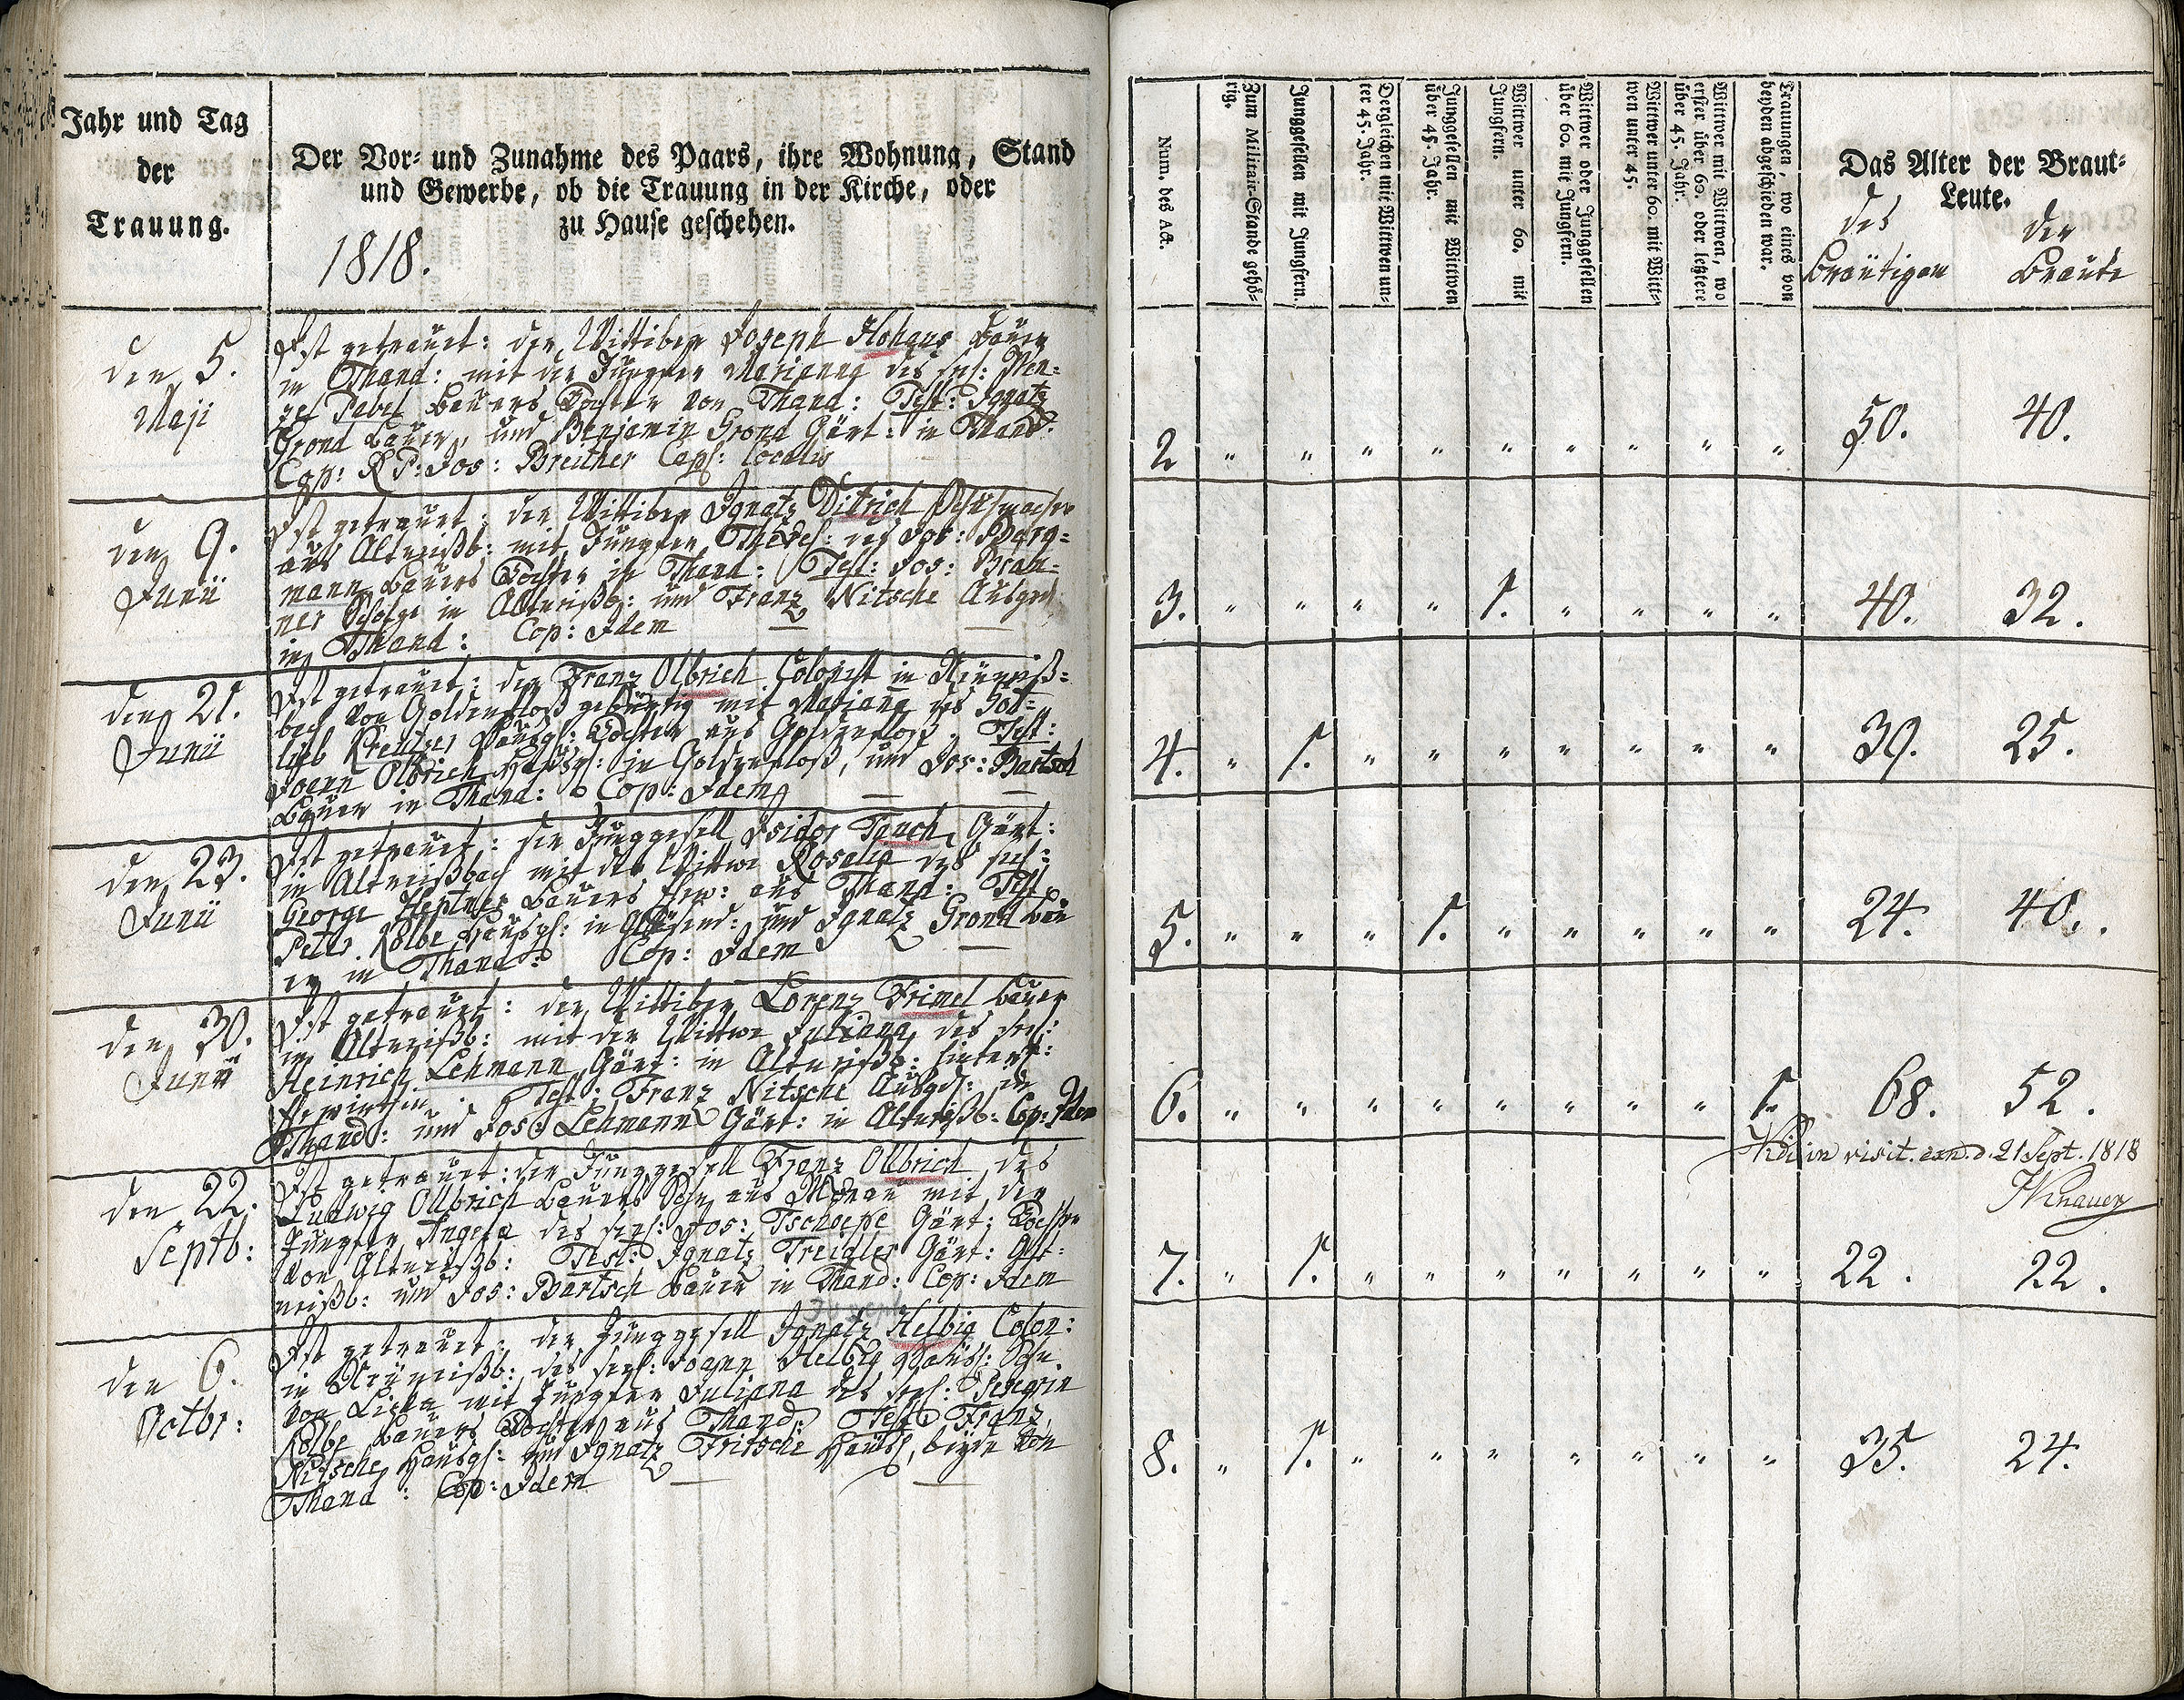 Jahr und Tag
der
Trauung.
Der Vor- und Zunahme des Paars, ihre Wohnung, Stand
und Gewerbe, ob die Trauung in der Kirche, oder
zu Hause geschehen.
1818.
den 5.
Maji
Ist getrauet: der Wittiber Joseph Hohaus Bauer
in Thand: mit der Jungfer Marianna des seel: Wen-
zel Pabel Bauers Tochter von Thand: Test: Ignatz
Grond Bauer, und Benjamin Grond Gärt: in Thand:
Cop: R P: Jos: Breither Capl: localis
den 9.
Junii
Ist getrauet: der Wittiber Ignatz Ditrich Schuhmacher
aus Altweißb: mit Jungfer Theres: des Jos: Berg-
mann Bauers Tochter in Thand: Test: Jos: Bran-
ner Scholze in Altweißb: und Franz Nitsche Ausged
in Thand: Cop: Idem
den 21.
Junii
Ist getrauet: der Franz Olbrich Colonist in Neuweiß-
bach von Goldenfloß gebürtig mit Mariana des Got-
lieb Kreutzer Häusl: Tochter aus Goldenfloß. Test:
Joann Olbrich Häusl: in Goldenfloß, und Jos: Bartsch
Bauer in Thand: Cop: Idem
den 23.
Junii
Ist getrauet: der Junggesell Isidor Tauch, Gärt:
in Altweißbach mit der Wittwe Rosalia des seel:
George Heptner Bauers aus Thand: Test
Peter Kolbe Häusl: in und Ignatz Grond Bau
er in Thand: Cop: Idem
den 30.
Junii
Ist getrauet: der Wittiber Lorenz Frimel Bauer
in Altweißb: mit der Wittwe Juliana, des seel:
Heinrich Lehmann Gärt: in Altweißb: hinterl:
Test: Franz Nitsche Ausged: in
Thand: und Jos: Lehmann Gärt: in Altweißb: Cop: Idem
den 22.
Septb:
Ist getrauet: der Junggesell Franz Ollbrich, des
Ludwig Ollbrich Bauers Sohn aus Mohrau mit der
Jungfer Angela des seel: Jos: Tschoepe Gärt: Tochter
von Altweißb: Test: Ignatz Treigler Gärt: Alt-
weißb: und Jos: Bartsch Bauer in Thand: Cop: Idem
den 6.
Octbr:
Ist getrauet: der Junggesell Ignatz Helbig Colon:
in Neuweißb: des seel: Joann Helbig Häusl: Sohn
von mit Jungfer Juliana des seel: Peregrin
Kolbe Bauers Tochter aus Thand: Test: Franz
Nitsche, Häusl: und Ignatz Fritsche Häusl, beyde von
Thand: Cop: Idem
Num. des Act.
Zum Militair-Stande gehö-
rig.
Junggesellen mit Jungfern.
Dergleichen mit Wittwen un-
ter 45. Jahr.
Junggesellen mit Wittwen
über 45. Jahr.
Wittwer unter 60. mit
Jungfern.
Wittwer oder Junggesellen
über 60. mit Jungfern.
Wittwer unter 60. mit Witt-
wen unter 45.
Wittwer mit Wittwen, wo
erster über 60. oder letztere
über 45. Jahr.
Trauungen, wo eines von
beyden abgeschieden war.
Das Alter der Braut-
Leute.
des
Bräutigam
der
Bräute
2 " " " " " " " " " 50. 40.
3. " " " " 1. " " " " 40. 32.
4. " 1. " " " " " " " 39. 25.
5. " " " 1. " " " " " 24. 40.
6. " " " " " " " " 1. 68. 52.
Vidi in visit. can. d. 21 Sept. 1818
Knauer
7. " 1. " " " " " " " 22. 22.
8. " 1. " " " " " " " 35. 24.